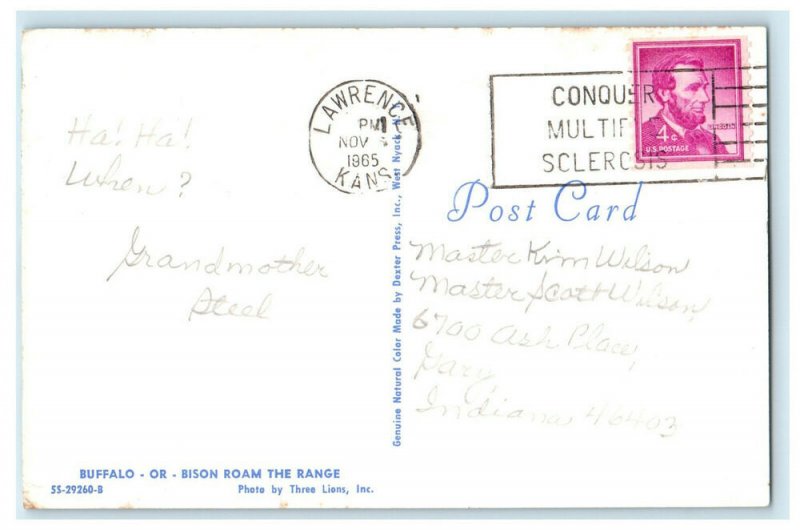 Ha! Ha!
When?
Grandmother
Steel
BUFFALO - OR - BISON ROAM THE RANGE
SS-29260-B
Photo by Three Lions, Inc.
Genuine Natural Color Made by Dexter Press, Inc., West Nyack,
LAWRENCE
PM
NOV
1965
KANS
CONQUER
MULTIP
SCLEROSIS
4¢
LINCOLN
U.S. POSTAGE
Post Card
Master Kim Wilson
Master Scott Wilson,
6700 Ash Place,
Gary,
Indiana 46403